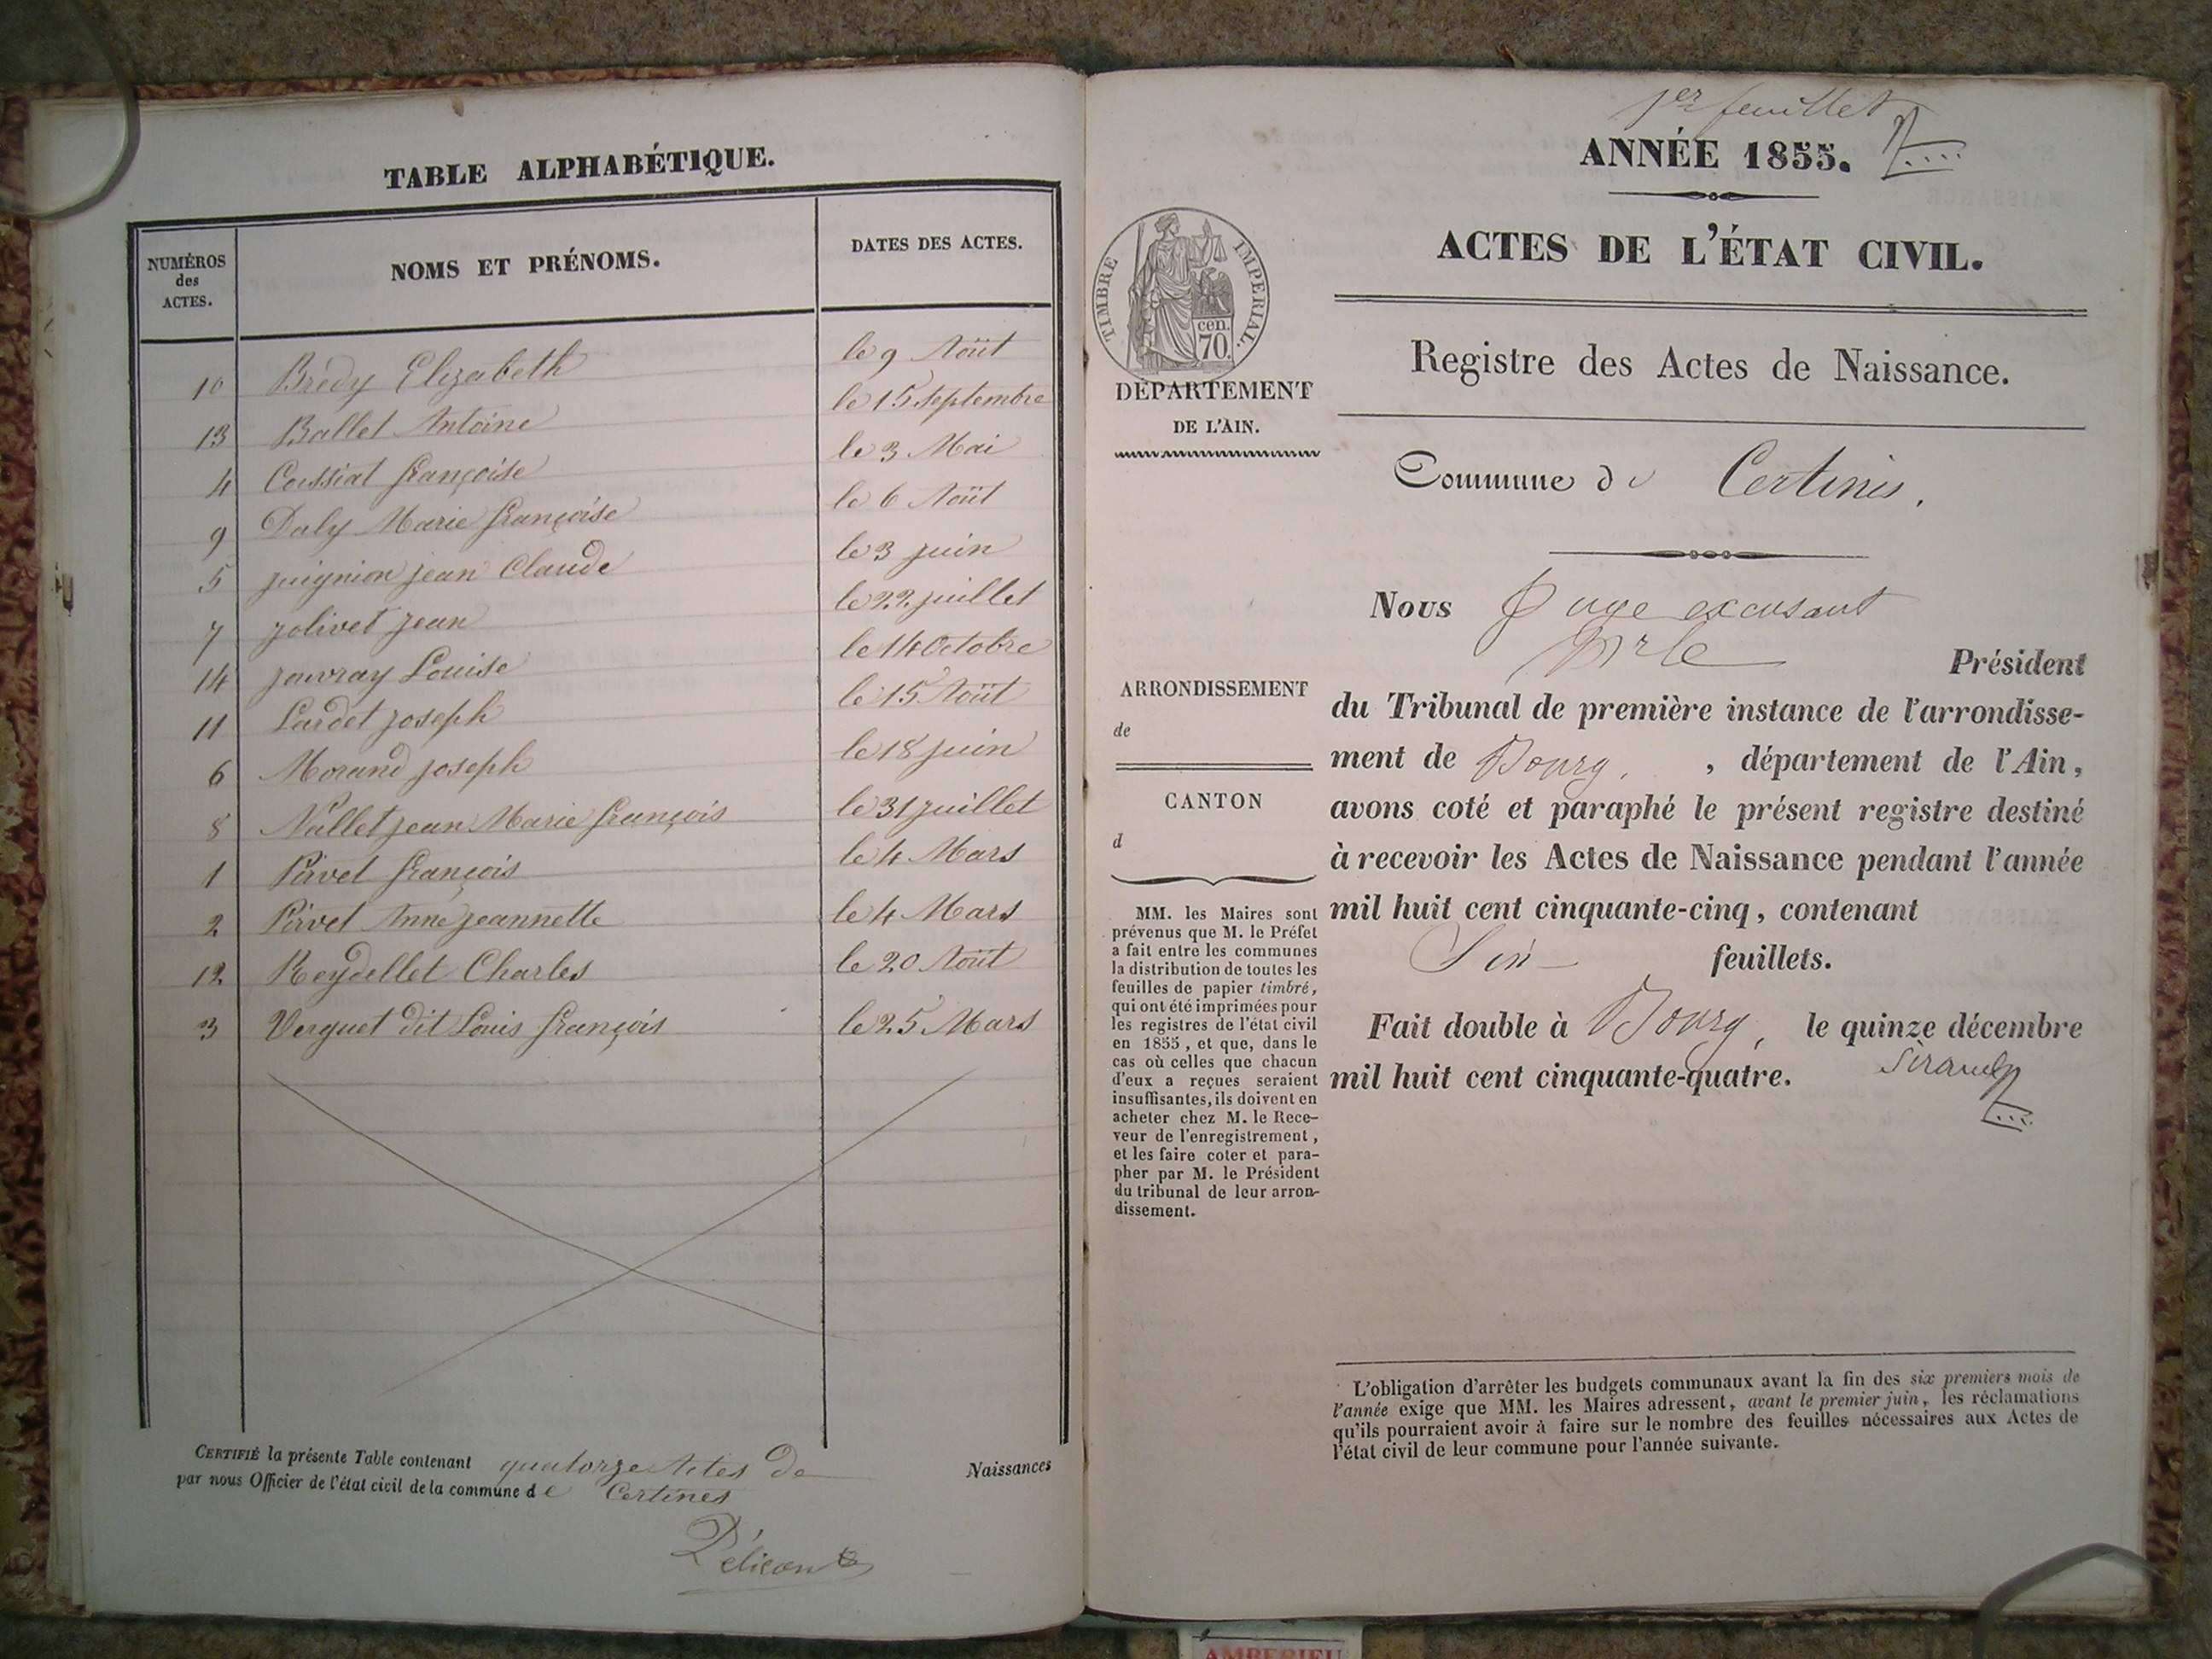 TABLE ALPHABÉTIQUE.
NUMÉROS des ACTES.
NOMS ET PRÉNOMS.
DATES DES ACTES.
10 Brédy Elizabeth le 9 Août
13 Ballet Antoine le 15 Septembre
4 Cussiat françoise le 3 Mai
9 Daly Marie françoise le 6 Août
5 juignion jean Claude le 3 juin
7 jolivet jean le 22 juillet
14 jouvray Louise le 14 Octobre
11 Lardet joseph le 15 Août
6 Morand joseph le 18 juin
8 Nallet jean Marie françois le 31 juillet
1 Pirvet françois le 4 Mars
2 Pirvet Anne jeannette le 4 Mars
12 Reydellet Charles le 20 Août
3 Verguet dit Louis françois le 25 Mars
CERTIFIÉ la présente Table contenant quatorze Actes de Naissances
par nous Officier de l'état civil de la commune de Certines
1er feuillet
ANNÉE 1855.
ACTES DE L'ÉTAT CIVIL.
TIMBRE IMPERIAL.
cen.
70.
Registre des Actes de Naissance.
DÉPARTEMENT
DE L'AIN.
Commune de Certines.
Nous Juge excusant
Mr le Président
du Tribunal de première instance de l'arrondisse-
ment de Bourg, , département de l'Ain,
avons coté et paraphé le présent registre destiné
à recevoir les Actes de Naissance pendant l'année
mil huit cent cinquante-cinq, contenant
Six feuillets.
Fait double à Bourg, le quinze décembre
mil huit cent cinquante-quatre.
ARRONDISSEMENT
de
CANTON
d
MM. les Maires sont
prévenus que M. le Préfet
a fait entre les communes
la distribution de toutes les
feuilles de papier timbré,
qui ont été imprimées pour
les registres de l'état civil
en 1855, et que, dans le
cas où celles que chacun
d'eux a reçues seraient
insuffisantes, ils doivent en
acheter chez M. le Rece-
veur de l'enregistrement,
et les faire coter et para-
pher par M. le Président
du tribunal de leur arron-
dissement.
L'obligation d'arrêter les budgets communaux avant la fin des six premiers mois de
l'année exige que MM. les Maires adressent, avant le premier juin, les réclamations
qu'ils pourraient avoir à faire sur le nombre des feuilles nécessaires aux Actes de
l'état civil de leur commune pour l'année suivante.
AMBERIEU